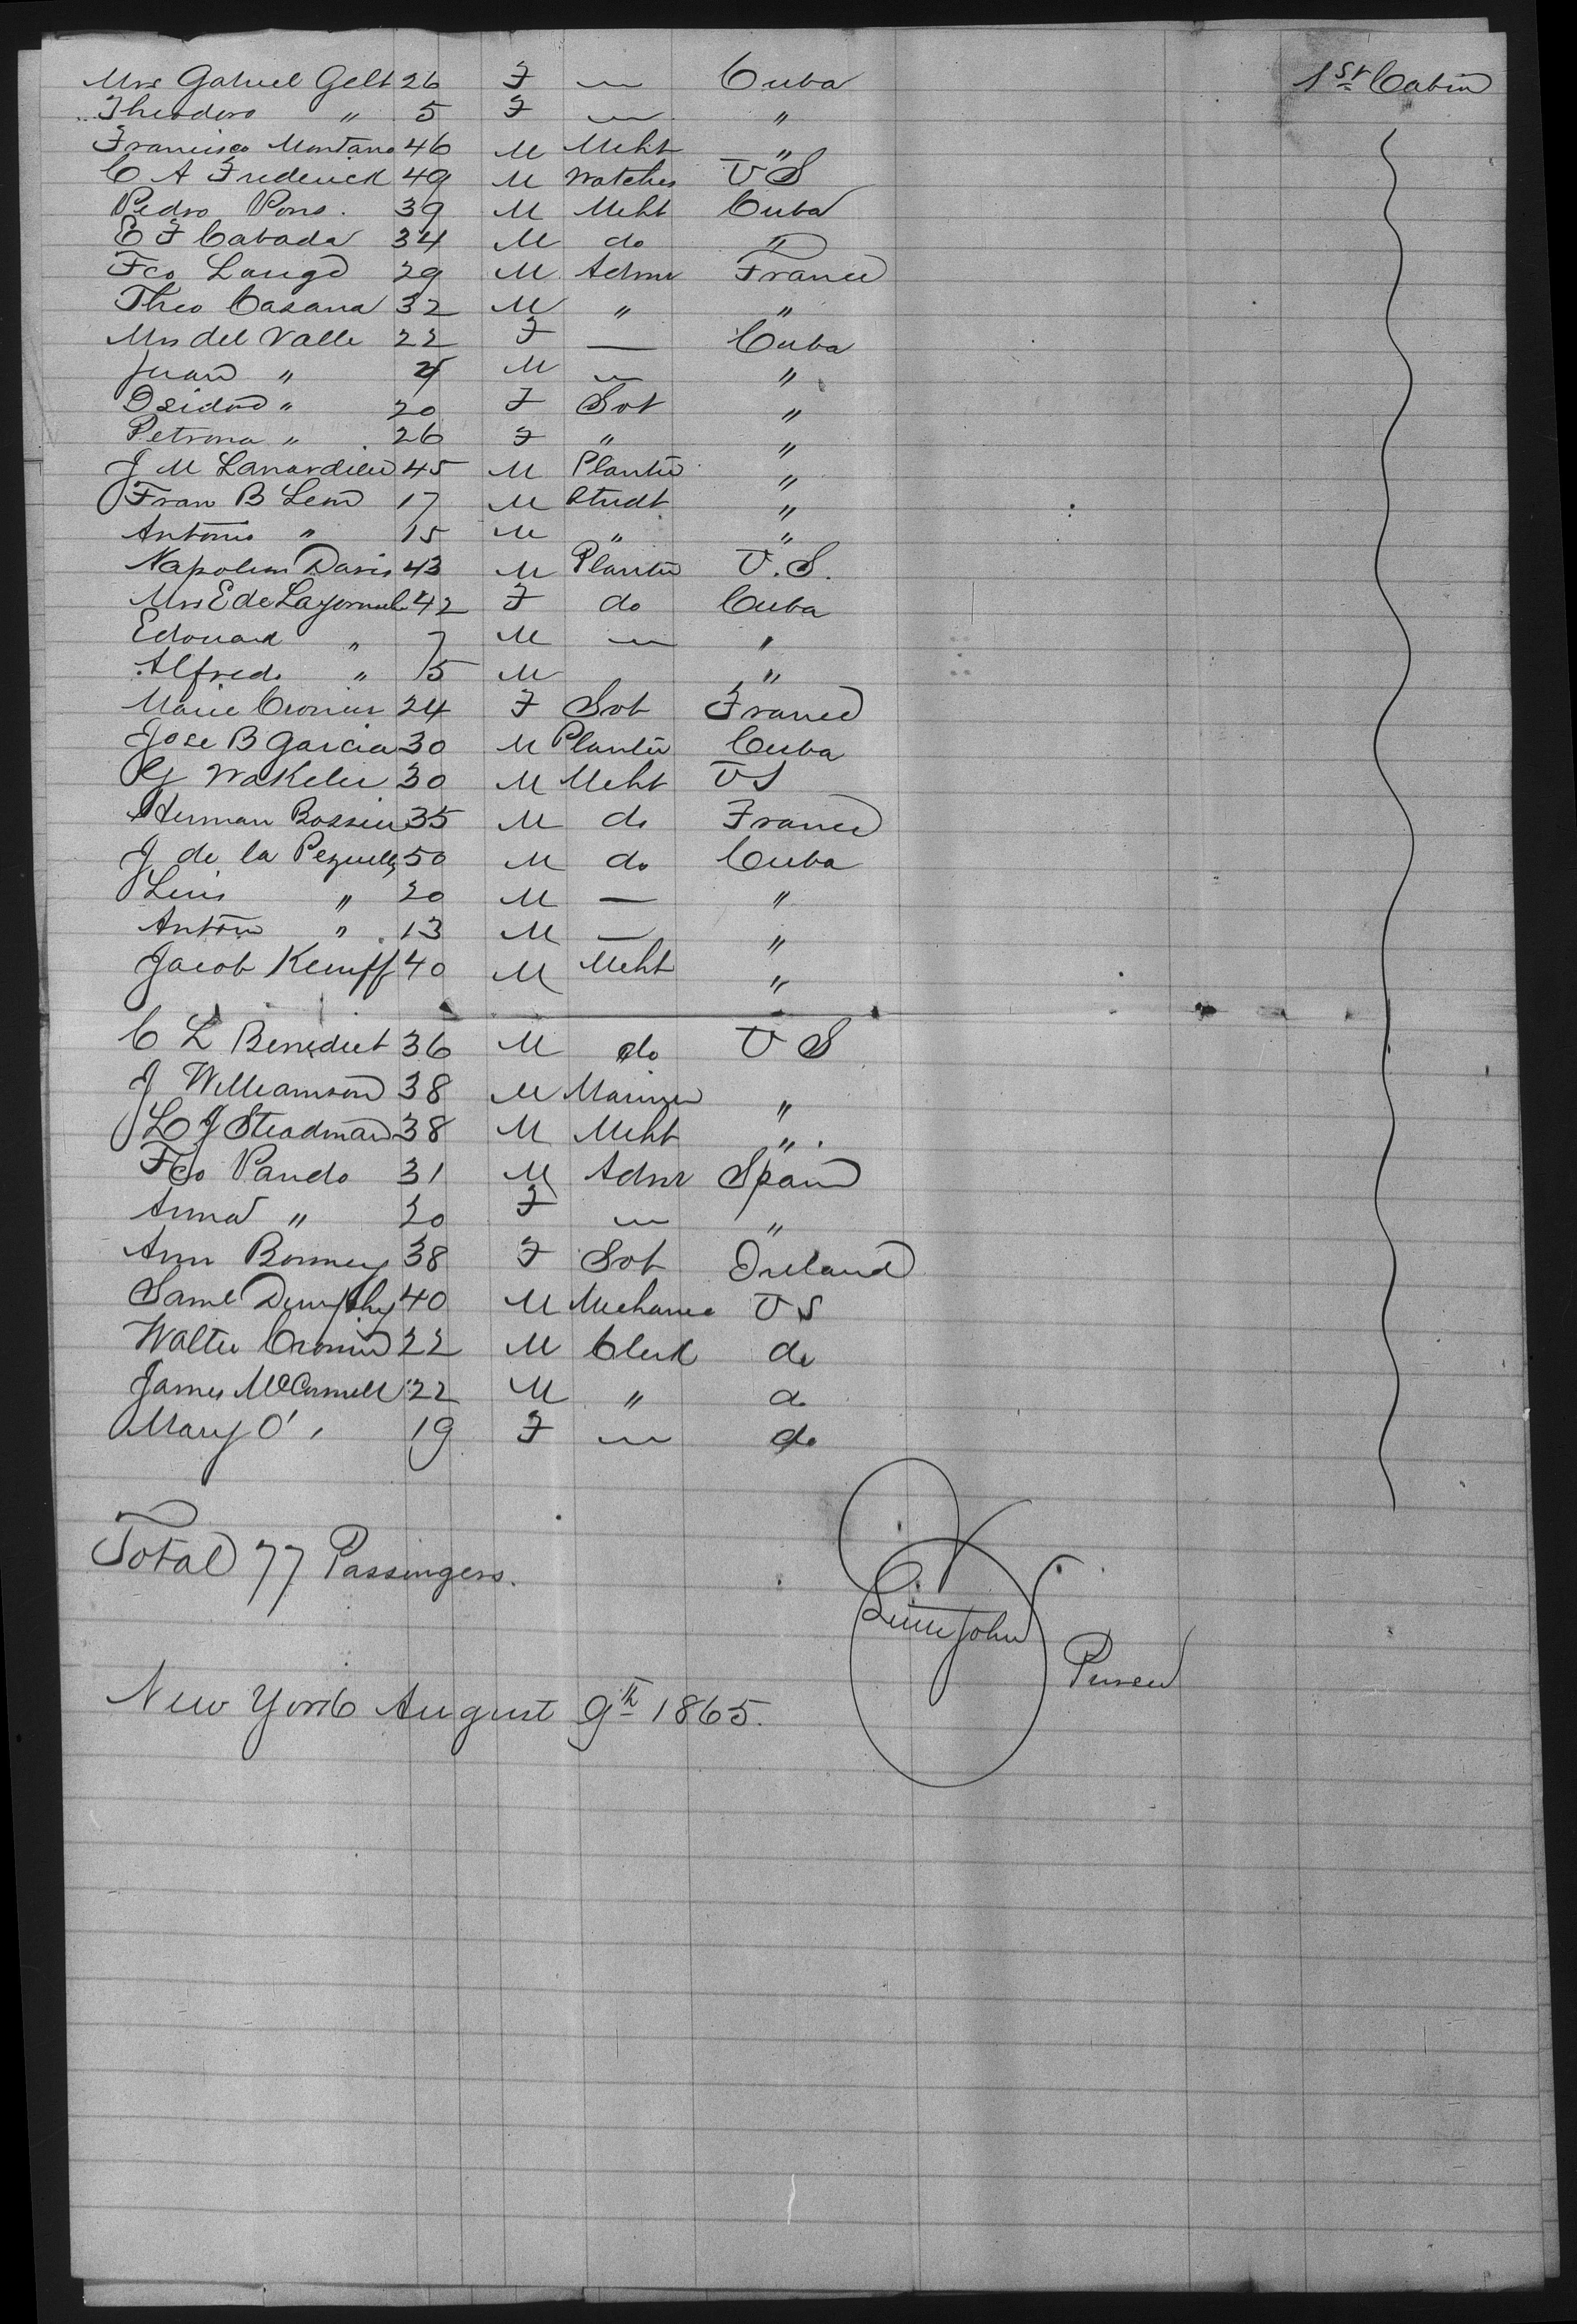 Mrs Gabriel Gelt 26 F — Cuba 1st Cabin
Theodoro " 5 F — "
Francisco Montano 46 M Mcht "
C A Frederick 49 M Watches U S
Pedro Pons. 39 M Mcht Cuba
E F Cabada 34 M do "
Fco Lange 29 M Admr France
Theo Casana 32 M " "
Mrs del Valle 22 F — Cuba
Juan " 4 M — "
Isidora " 20 F Svt "
Petrona " 26 F " "
J M Lanardieu 45 M Planter "
Fran B Leon 17 M Studt "
Antonio " 15 M " "
Napoleon Davis 43 M Planter U.S.
Mrs E de 42 F do Cuba
Edouard " 7 M — "
Alfredo " 5 M "
Marie Cronier 24 F Svt France
Jose B Garcia 30 M Planter Cuba
G Wakelee 30 M Mcht US
Herman 35 M do France
J de la Pezuela 50 M do Cuba
Luis " 20 M — "
Anton " 13 M — "
Jacob Kemff 40 M Mcht "
C L Benedict 36 M do U S
J Williamson 38 M Mariner "
L J Steadman 38 M Mcht "
Fco Pando 31 M Admr Spain
Anna " 20 F — "
Ann Bonney 38 F Svt Ireland
Saml Dumphy 40 M Mechanic U S
Walter Cronin 22 M Clerk do
James McConnell 22 M " do
Mary O' " 19 F — do
Total 77 Passengers.
Littlejohn
Purser
New York August 9th 1865.